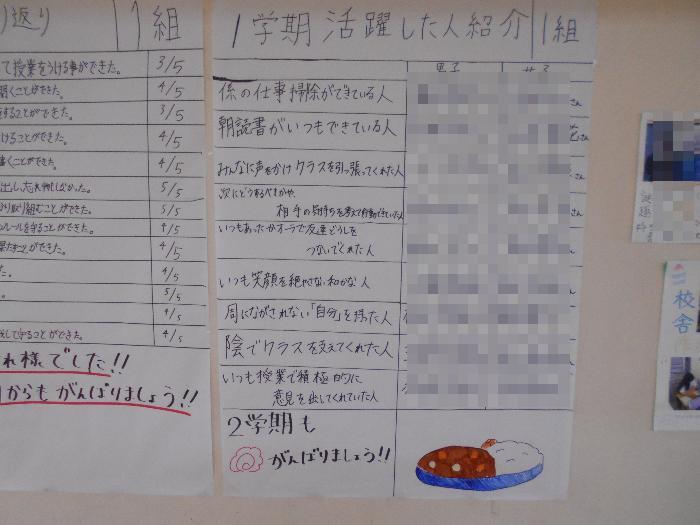 り返り 1組
て授業をうける事ができた。 3/5
聞くことができた。 4/5
することができた。 3/5
けることができた。 4/5
書くことができた。 4/5
出し、忘れ物しなかった。 5/5
取り組むことができた。 5/5
ルールを守ることができた。 4/5
ことができた。 4/5
た。 4/5
。 5/5
4/5
して守ることができた。 4/5
れ様でした!!
からもがんばりましょう!!
1学期活躍した人紹介 1組
男子 女子
係の仕事掃除ができている人
朝読書がいつもできている人
みんなに声をかけクラスを引っ張ってくれた人
次にどうするべきかや、
相手の気持ちを考えて行動できていた人
いつもあったかオーラで友達どうしを
つないでくれた人
いつも笑顔を絶やさない和かな人
周にながされない「自分」を持った人
陰でクラスを支えてくれた人
いつも授業で積極的に
意見を出してくれていた人
2学期も
がんばりましょう!!
校舎